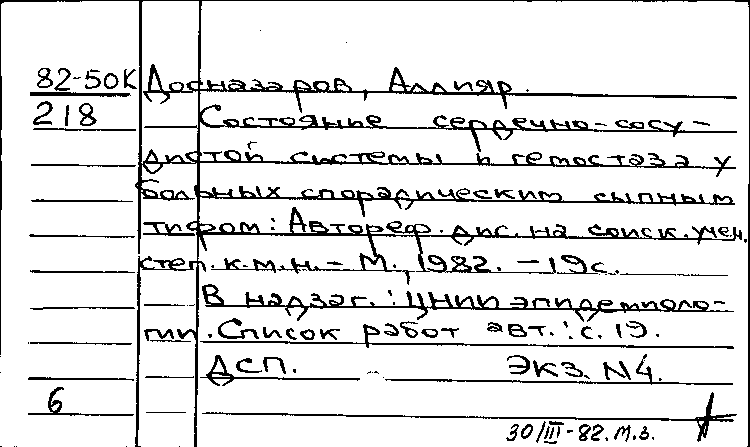 82-50К Досназаров, Аллияр.
218 Состояние сердечно-сосу-
дистой системы и гемостаза у
больных спорадическим сыпным
тифом: Автореф. дис. на соиск. учен.
степ. к.м.н. - М., 1982. - 19с.
В надзаг.: ЦНИИ эпидемиоло-
гии. Список работ авт.: с. 19.
ДСП. Экз. N4.
6
30/III-82. М.З.